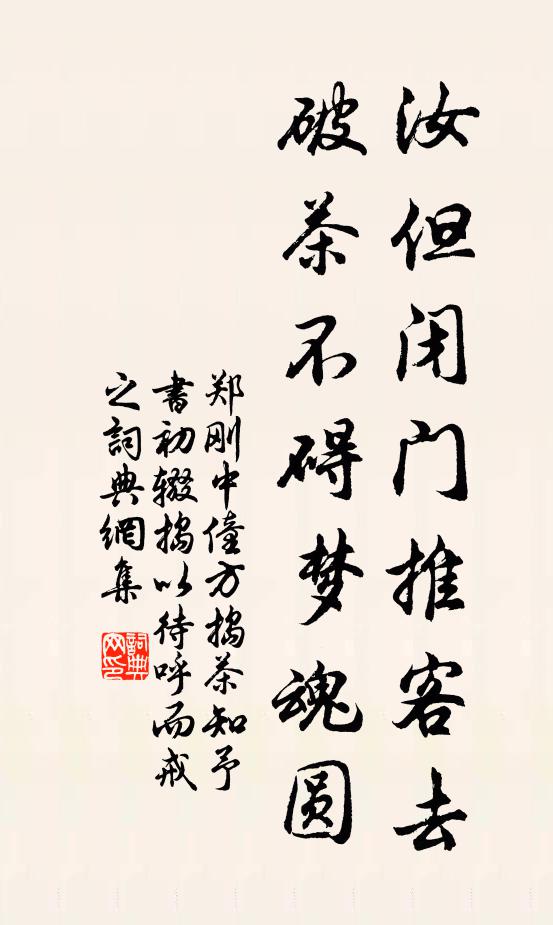 汝但闭门推客去
破茶不碍梦魂圆
郑刚中僮方捣茶知予
书初辍捣以待呼而戒
之詞典網集
詞典
网印